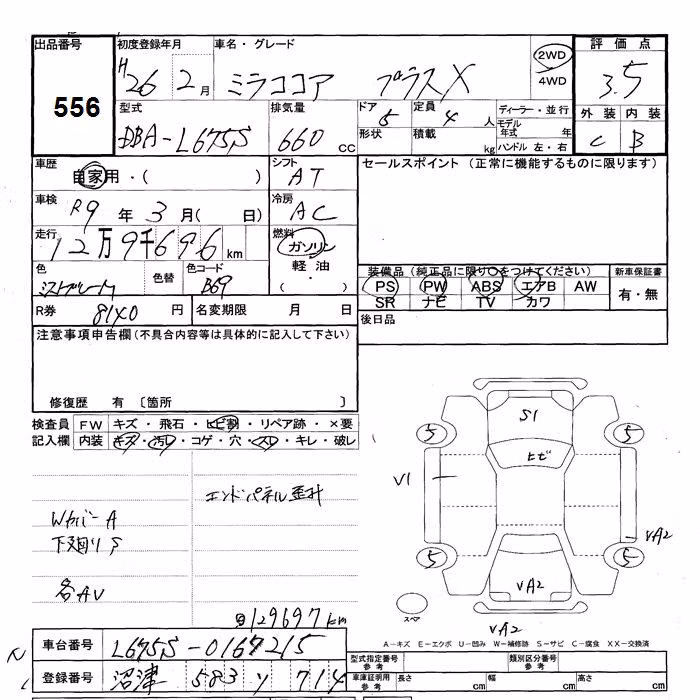 出品番号
556
初度登録年月
H26年 2月
車名・グレード
ミラココア プラスX
2WD
4WD
評価点
3.5
外装 内装
C B
型式
DBA-L675S
排気量
660 cc
ドア
5
定員
4 人
形状
積載
kg
ディーラー・並行
モデル年式 年
ハンドル 左・右
車歴
自家用・( )
シフト
AT
セールスポイント (正常に機能するものに限ります)
車検
R9年 3月( 日)
冷房
AC
走行
12万9千696 km
燃料
ガソリン
軽油
・
( )
色
色替
色コード
B69
装備品(純正品に限り○をつけてください)
PS PW ABS エアB AW
SR ナビ TV カワ
新車保証書
有・無
R券
8140 円
名変期限 月 日
後日品
注意事項申告欄(不具合内容等は具体的に記入して下さい)
修復歴 有 〔箇所 〕
検査員記入欄
FW キズ・飛石・ヒビ割・リペア跡・×要
内装 キズ・汚レ・コゲ・穴・スレ・キレ・破レ
エンドパネル歪み
WカバーA
下廻りS
各AV
129697km
S1
ヒビ
5
5
5
5
V1
VA2
VA2
VA2
スペア
A-キズ E-エクボ U-凹み W-補修跡 S-サビ C-腐食 XX-交換済
車台番号
L675S-0167215
登録番号
沼津 583 ツ 714
型式指定番号
参考
類別区分番号
参考
車庫証明用
参考
長さ cm
幅 cm
高さ cm